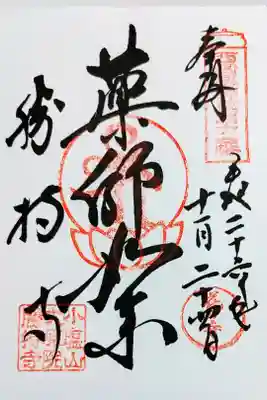 奉拝
平成二十六年
十一月二十四日
薬師如来
勝持寺
小塩山
勝持寺